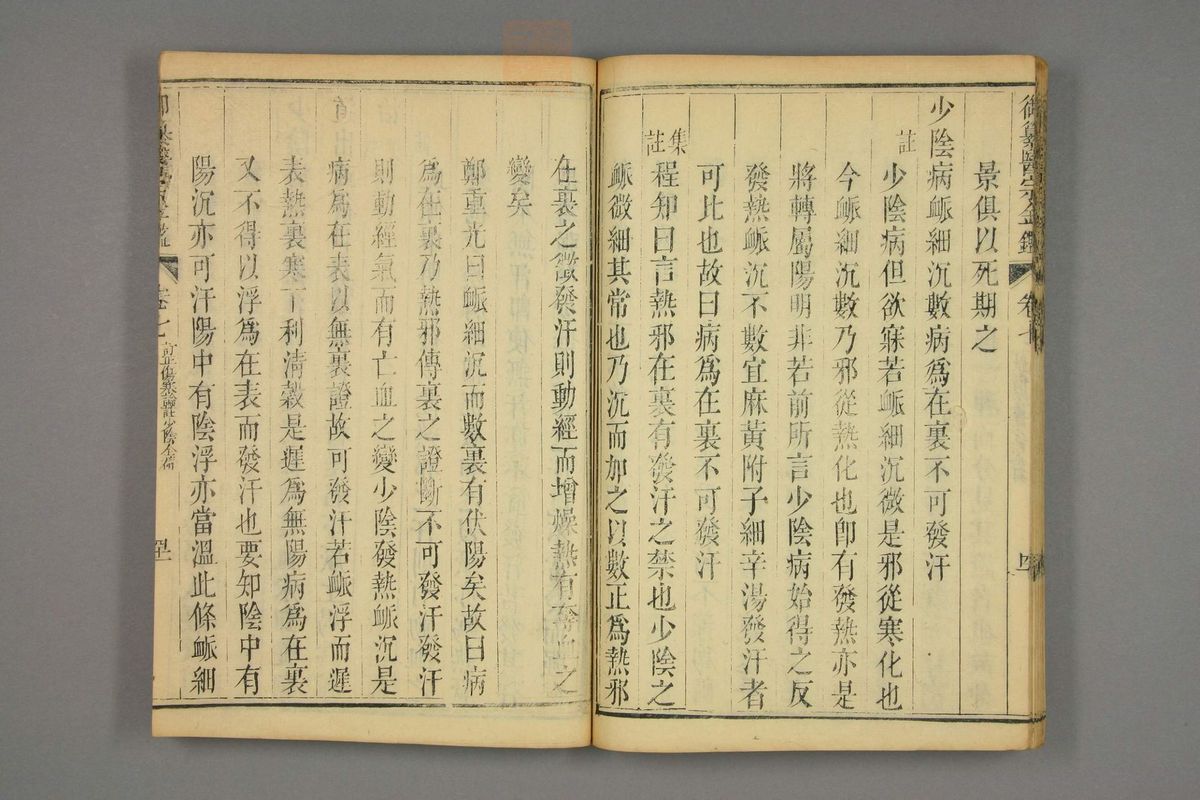 御纂醫宗金鑑 卷七
景俱以死期之
少陰病脈細沉數病為在裏不可發汗
註
少陰病但欲寐若脈細沉微是邪從寒化也
今脈細沉數乃邪從熱化也即有發熱亦是
將轉屬陽明非若前所言少陰病始得之反
發熱脈沉不數宜麻黃附子細辛湯發汗者
可比也故曰病為在裏不可發汗
集註
程知曰言熱邪在裏有發汗之禁也少陰之
脈微細其常也乃沉而加之以數正為熱邪
在裏之徵發汗則動經而增燥熱有奪血之
變矣
鄭重光曰脈細沉而數裏有伏陽矣故曰病
為在裏乃熱邪傳裏之證斷不可發汗發汗
則動經氣而有亡血之變少陰發熱脈沉是
病為在表以無裏證故可發汗若脈浮而遲
表熱裏寒下利清穀是遲為無陽病為在裏
又不得以浮為在表而發汗也要知陰中有
陽沉亦可汗陽中有陰浮亦當溫此條脈細
御纂醫宗金鑑 卷七 訂正傷寒論註少陰全篇